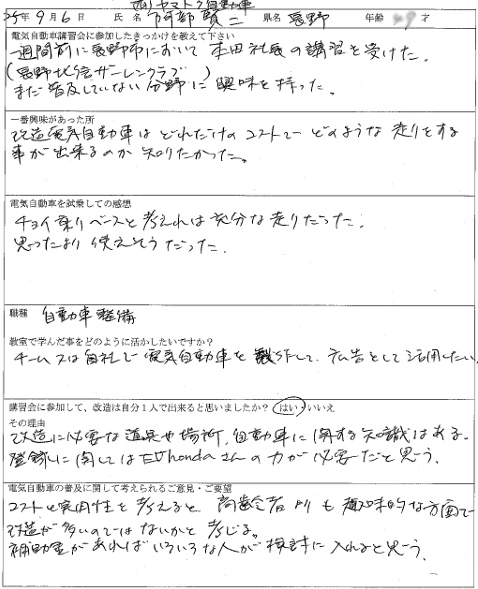 (有)ヤマト自動車
25年9月6日 氏名 阿部賢二 県名 長野 年齢 才
電気自動車講習会に参加したきっかけを教えて下さい
一週間前に長野市において 本田社長の講習を受けた。
(長野 サーレンクラブ)
まだ普及していない分野に興味を持った。
一番興味があった所
改造電気自動車はどれだけのコストでどのような走りをする
事が出来るのか知りたかった。
電気自動車を試乗しての感想
チョイ乗りベースと考えれば充分な走りだった。
思ったより使えそうだった。
職種 自動車整備
教室で学んだ事をどのように活かしたいですか?
チームスは自社で電気自動車を製作して、広告として活用したい
講習会に参加して、改造は自分1人で出来ると思いましたか? はい・いいえ
その理由
改造に必要な道具や場所、自動車に関する知識はある。
登録に関してはEVhondaさんの力が必要だと思う。
電気自動車の普及に関して考えられるご意見・ご要望
コストと実用性を考えると 高齢者 も趣味的な方面で
改造が多いのではないかと考じる。
補助金があればいろいろな人が検討に入れると思う。